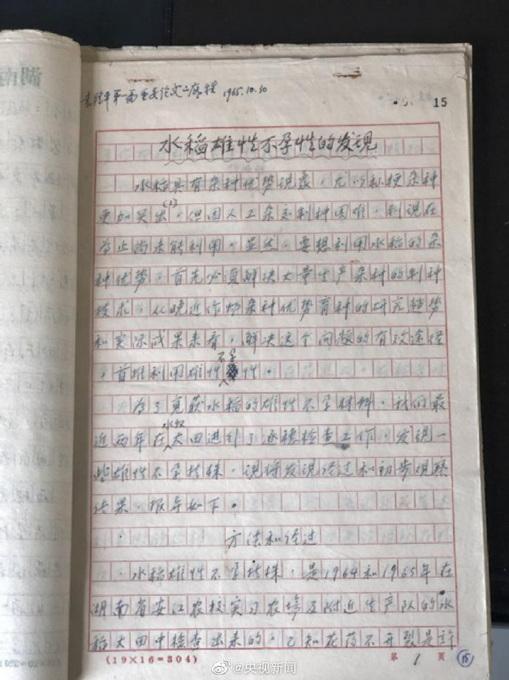 湖南
袁隆平第一篇重要论文二席稿 1965.10.30
15
水稻雄性不孕性的发现
水稻具有杂种优势现象,尤以籼粳杂种
更加突出(1),但因人工杂交制种困难,到现在
为止尚未能利用。显然,要想利用水稻的杂
种优势,首先必须解决大量生产杂种的制种
技术。从晚近作物杂种优势育种的研究趋势
和实际成果来看,解决这个问题的有效途径
,首推利用雄性不孕性。
为了克获水稻的雄性不孕材料,我们最
近两年在水稻大田进行了逐穗检查工作,发现一
些雄性不孕植株。现将发现经过和初步观察
结果,报导如下。
方法和经过
水稻雄性不孕植株,是1964和1965年在
湖南省安江农校实习农场及附近生产队的水
稻大田中检查出来的。已知花药不开裂是许
(19×16=304)
第 1 页
15
@央视新闻